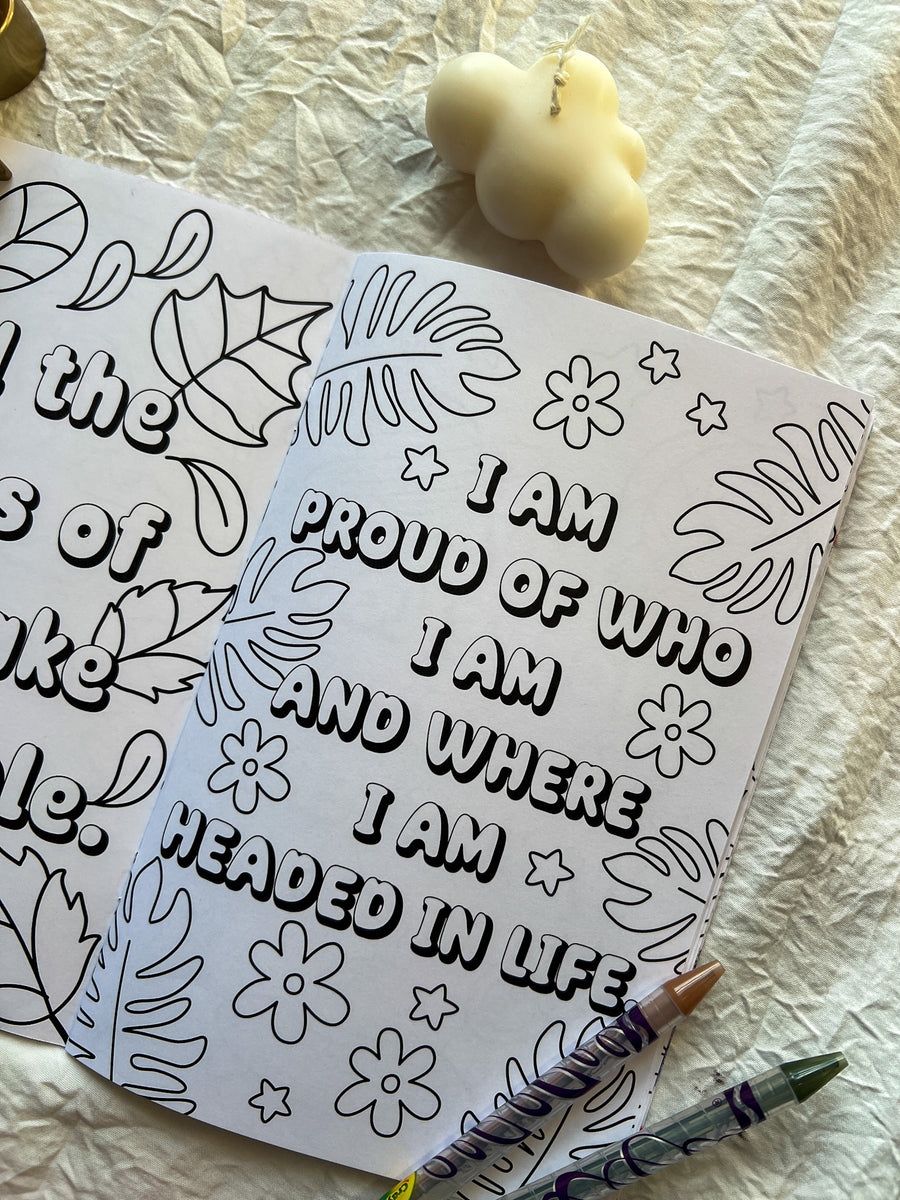 the
of
I AM
PROUD OF WHO
I AM
AND WHERE
I AM
HEADED IN LIFE.